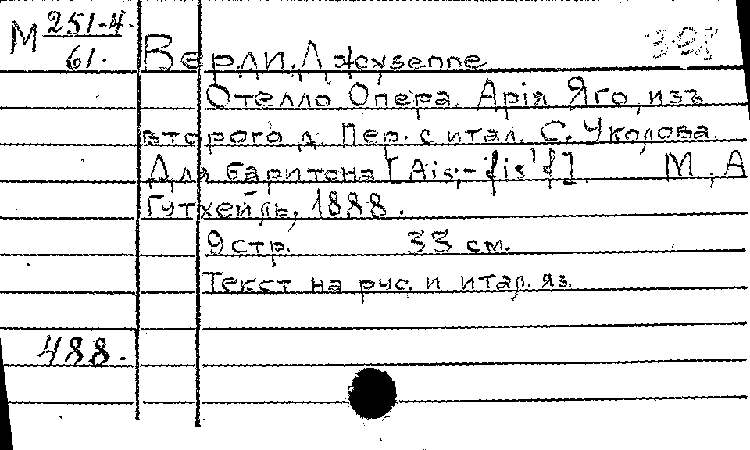 М 251-4.
61.
Верди, Джузеппе
398
Отелло. Опера. Арія Яго, изъ
второго д. Пер. с итал. С. Уколова.
Для баритона [Ais,-fis' f]. М., А
Гутхейль, 1888.
9 стр. 33 см.
Текст на рус. и итал. яз.
488.